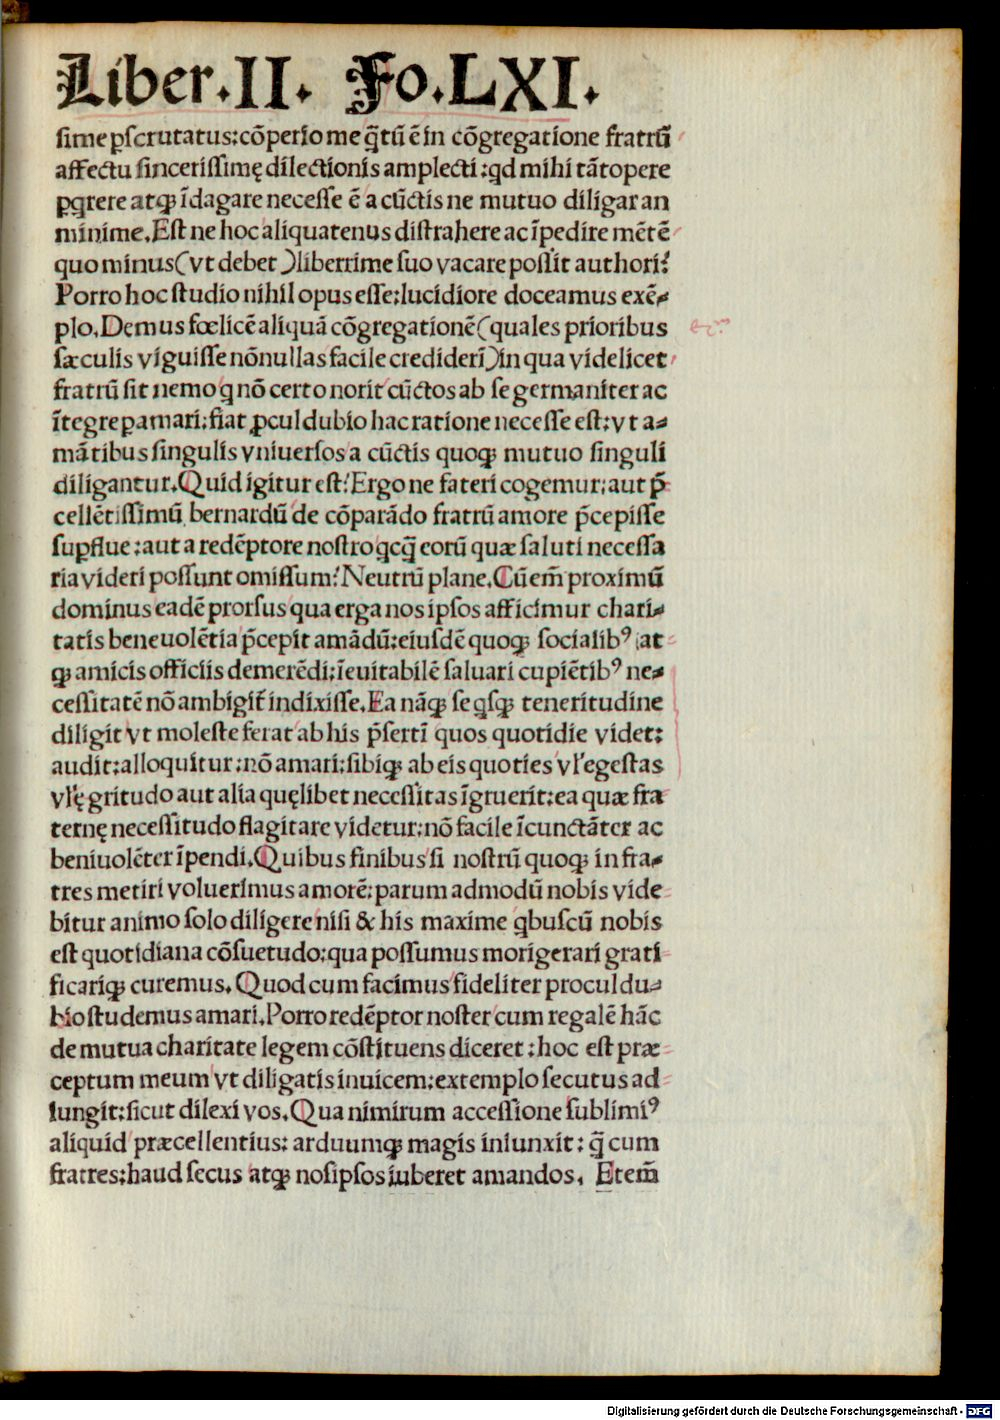 Liber.II. Fo.LXI.
ſime ꝑſcrutatus:cõperio me q̃tũ ẽ in cõgregatione fratrũ
affectu ſinceriſſimę dilectionis amplecti:qd mihi tãtopere
ꝑqrere atqꝫ ĩdagare neceſſe ẽ a cũctis ne mutuo diligar an
minime.Eſt ne hoc aliquatenus diſtrahere ac ĩpedire mẽtẽ
quo minus(vt debet)liberrime ſuo vacare poſſit authori?
Porro hoc ſtudio nihil opus eſſe:lucidiore doceamus exẽ⸗
plo.Demus fœlicẽ aliquã cõgregationẽ(quales prioribus
ſæculis viguiſſe nõnullas facile crediderĩ)in qua videlicet
fratrũ ſit nemo q nõ certo norit cũctos ab ſe germaniter ac
ĩtegre ꝑamari:fiat ꝓcul dubio hac ratione neceſſe eſt:vt a⸗
mãtibus ſingulis vniuerſos a cũctis quoqꝫ mutuo ſinguli
diligantur.Quid igitur eſt?Ergo ne fateri cogemur:aut p̃
cellẽtiſſimũ bernardũ de cõparãdo fratrũ amore p̃cepiſſe
ſuꝑflue:aut a redẽptore noſtro qcq̃ eorũ quæ ſaluti neceſſa
ria videri poſſunt omiſſum?Neutrũ plane.Cũ em̃ proximũ
dominus eadẽ prorſus qua erga nos ipſos afficimur chari⸗
tatis beneuolẽtia p̃cepit amãdũ:eiuſdẽ quoqꝫ ſocialibꝰ at
qꝫ amicis officiis demerẽdi:ĩeuitabilẽ ſaluari cupiẽtibꝰ ne⸗
ceſſitatẽ nõ ambigit᷑ indixiſſe.Ea nãqꝫ ſe qſqꝫ teneritudine
diligit vt moleſte ferat ab his p̃ſertĩ quos quotidie videt:
audit:alloquitur:nõ amari:ſibiqꝫ ab eis quoties vl̕ egeſtas
vl̕ ęgritudo aut alia quęlibet neceſſitas ĩgruerit:ea quæ fra
ternę neceſſitudo flagitare videtur:nõ facile ĩcunctãter ac
beniuolẽter ĩpendi.Quibus finibus ſi noſtrũ quoqꝫ in fra⸗
tres metiri voluerimus amorẽ:parum admodũ nobis vide
bitur animo ſolo diligere niſi & his maxime qbuſcũ nobis
eſt quotidiana cõſuetudo:qua poſſumus morigerari grati
ficariqꝫ curemus.Quod cum facimus fideliter procul du⸗
bio ſtudemus amari.Porro redẽptor noſter cum regalẽ hãc
de mutua charitate legem cõſtituens diceret:hoc eſt præ
ceptum meum vt diligatis inuicem:extemplo ſecutus ad
iungit:ſicut dilexi vos.Qua nimirum acceſſione ſublimiꝰ
aliquid præcellentius:arduumqꝫ magis iniunxit:q̃ cum
fratres:haud ſecus atqꝫ noſipſos iuberet amandos. Etem̃
Digitalisierung gefördert durch die Deutsche Forschungsgemeinschaft - DFG